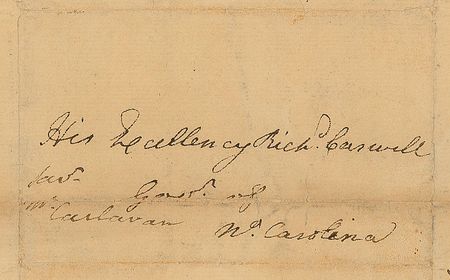 His Excellency Richd. Caswell
favd. Govr. of
Mr. Carlavan Nº. Carolina